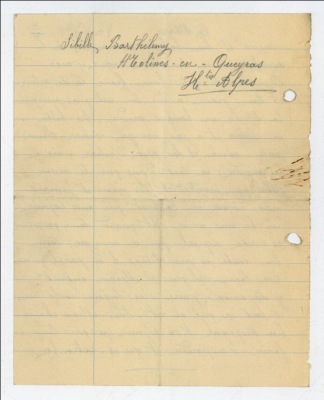 Sibille Barthélemy
Molines-en-Queyras
Htes Alpes